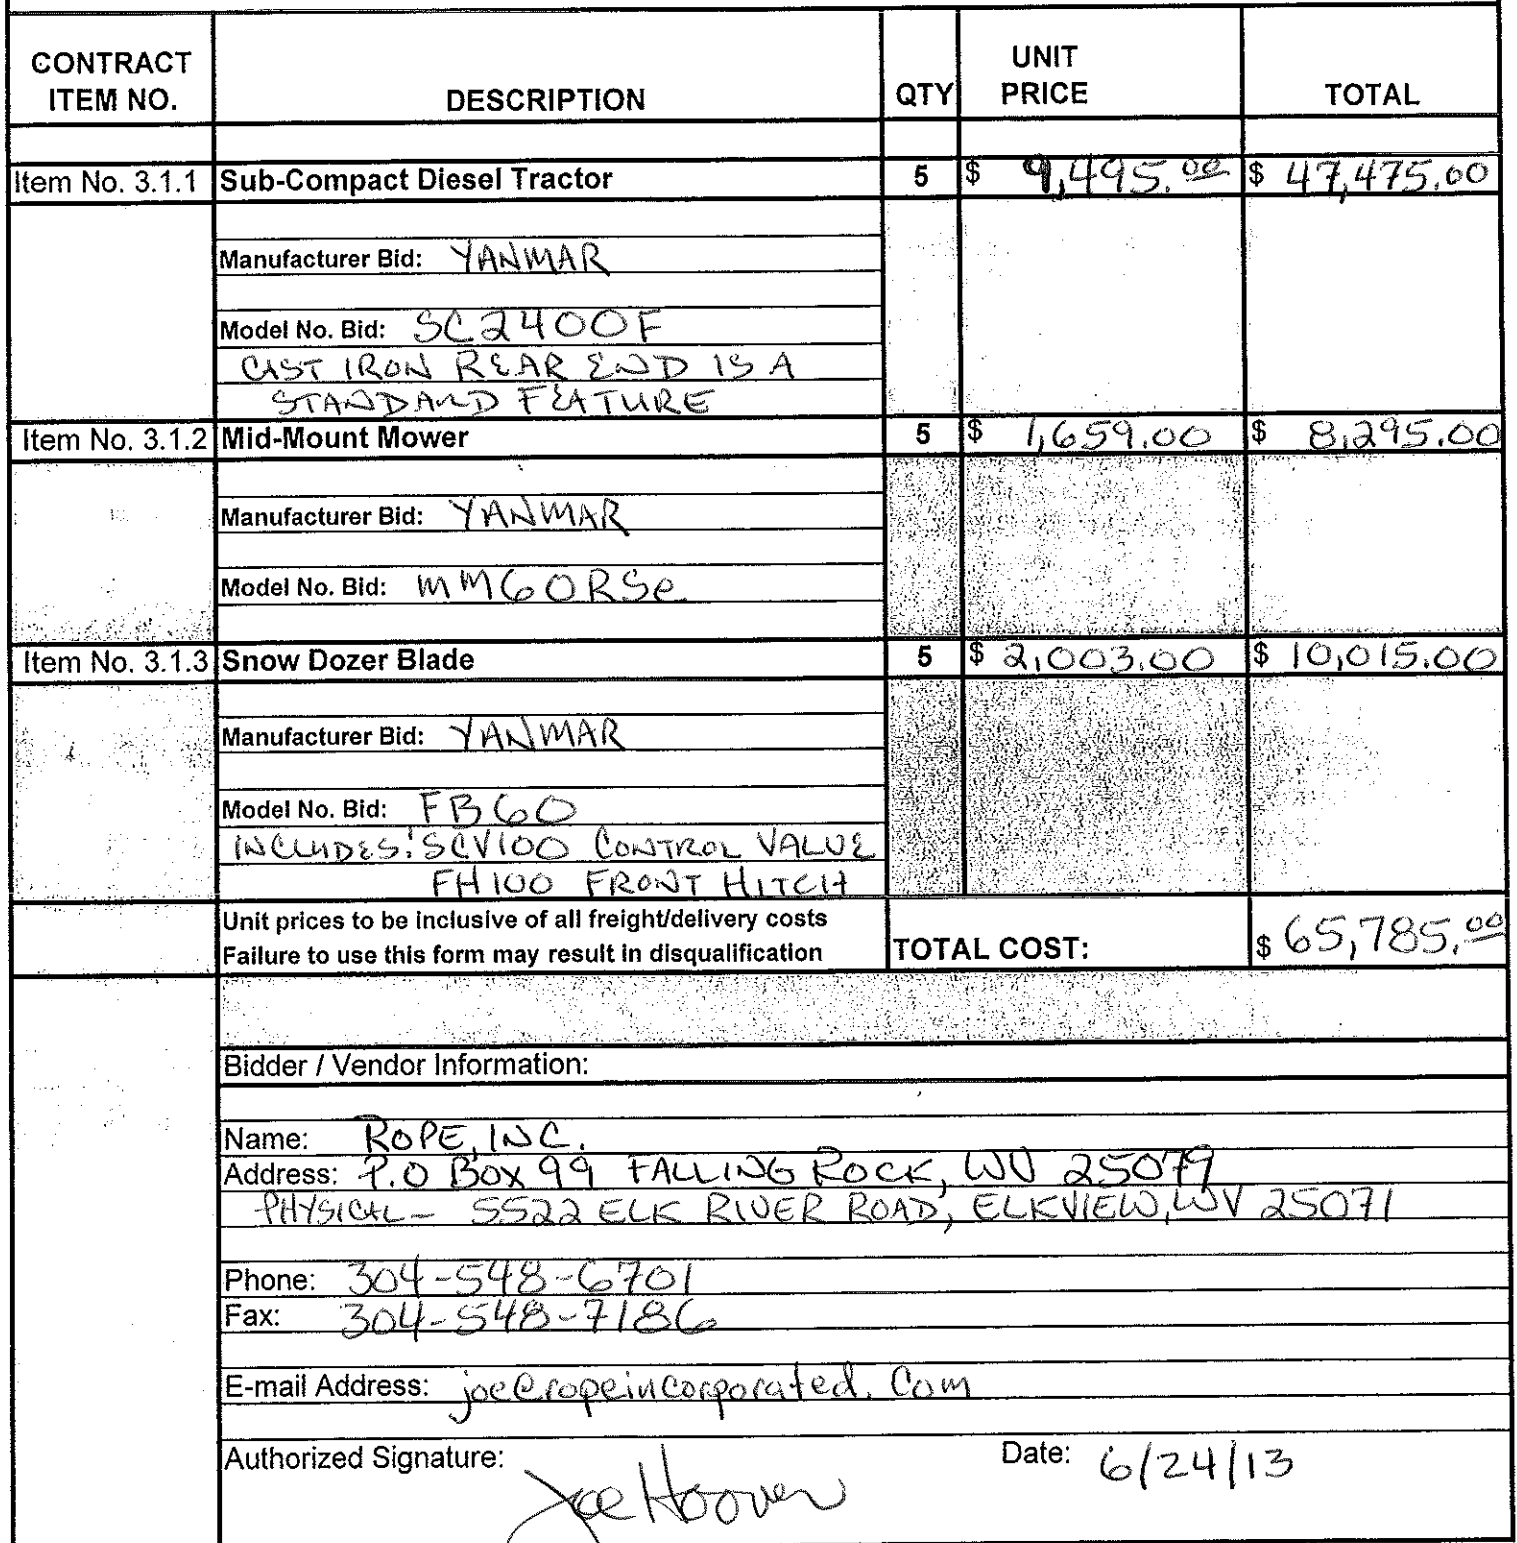 CONTRACT
ITEM NO.
DESCRIPTION
QTY
UNIT
PRICE
TOTAL
Item No. 3.1.1 Sub-Compact Diesel Tractor 5 $ 9,495.00 $ 47,475.00
Manufacturer Bid: YANMAR
Model No. Bid: SC2400F
CAST IRON REAR END IS A
STANDARD FEATURE
Item No. 3.1.2 Mid-Mount Mower 5 $ 1,659.00 $ 8,295.00
Manufacturer Bid: YANMAR
Model No. Bid: MM60RSe
Item No. 3.1.3 Snow Dozer Blade 5 $ 2,003.00 $ 10,015.00
Manufacturer Bid: YANMAR
Model No. Bid: FB60
INCLUDES: SCV100 CONTROL VALUE
FH100 FRONT HITCH
Unit prices to be inclusive of all freight/delivery costs
Failure to use this form may result in disqualification
TOTAL COST: $ 65,785.00
Bidder / Vendor Information:
Name: ROPE, INC.
Address: P.O BOX 99 FALLING ROCK, WV 25079
PHYSICAL- 5522 ELK RIVER ROAD, ELKVIEW, WV 25071
Phone: 304-548-6701
Fax: 304-548-7186
E-mail Address: joe@ropeincorporated.Com
Authorized Signature: Joe Hoover Date: 6/24/13